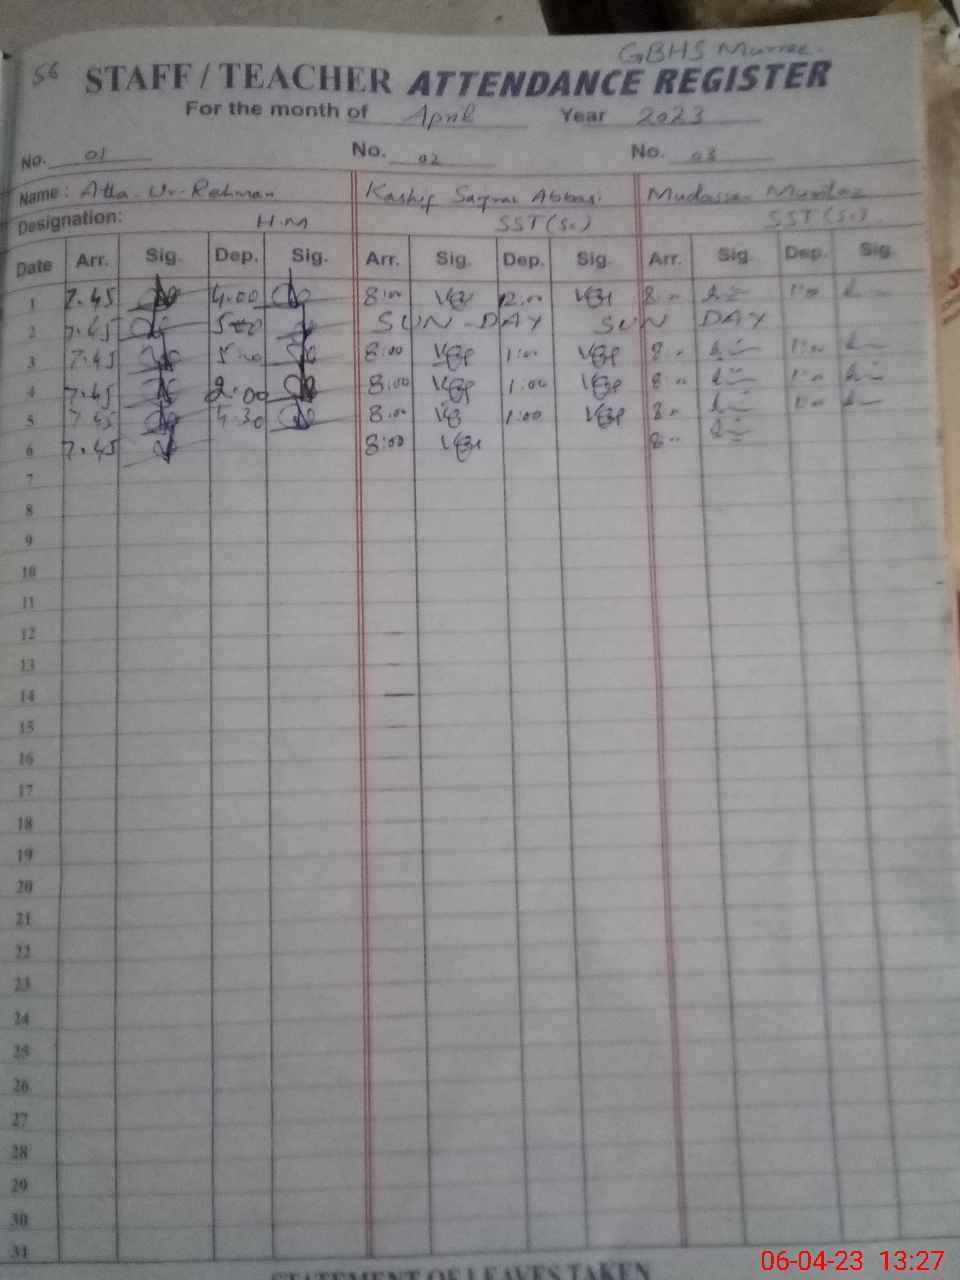 GBHS Murree.
56 STAFF / TEACHER ATTENDANCE REGISTER
For the month of April Year 2023
No. 01 No. 02 No. 03
Name: Atta-Ur-Rehman Kashif Abbasi Mudassar Mumtaz
Designation: H.M SST (Sc) SST (Sc)
Date Arr. Sig. Dep. Sig. Arr. Sig. Dep. Sig. Arr. Sig. Dep. Sig.
1 7.45 4.00 8:00 12.00 8:00 1:00
2 7.45 5:00 SUN-DAY SUN DAY
3 7.45 5:00 8:00 1:00 8:00 1:00
4 7.45 2:00 8:00 1:00 8:00 1:00
5 7.45 4.30 8:00 1:00 8:00 1:00
6 7.45 8:00 8:00
7
8
9
10
11
12
13
14
15
16
17
18
19
20
21
22
23
24
25
26
27
28
29
30
31
STATEMENT OF LEAVES TAKEN
06-04-23 13:27